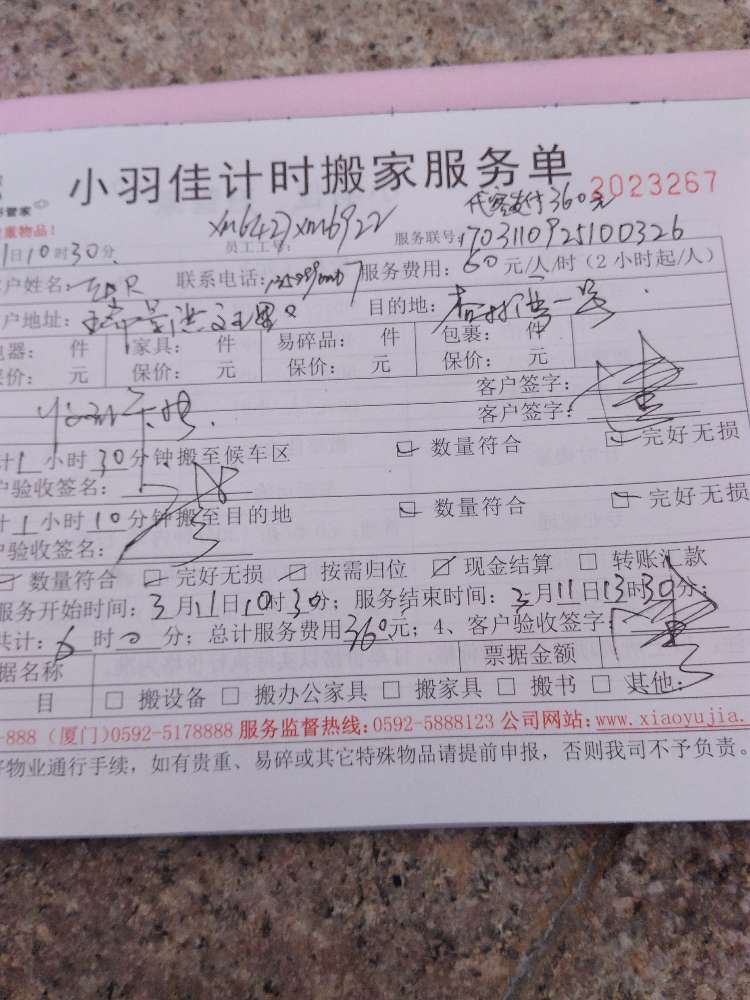 小羽佳计时搬家服务单
代客支付360元 2023267
管家
重物品!
xm6427 xm6922
1日10时30分 员工工号: 服务联号: 1703110925100326
户姓名: 联系电话: 服务费用: 60 元/人/时(2小时起/人)
户地址: 目的地: 一号
电器: 件 家具: 件 易碎品: 件 包裹: 件
保价: 元 保价: 元 保价: 元 保价: 元
客户签字:
客户签字:
计1小时30分钟搬至候车区 数量符合 完好无损
户验收签名:
计1小时10分钟搬至目的地 数量符合 完好无损
户验收签名:
数量符合 完好无损 按需归位 现金结算 转账汇款
服务开始时间: 3月11日10时30分; 服务结束时间: 3月11日13时30分;
共计: 6时0分; 总计服务费用360元; 4、客户验收签字:
据名称 票据金额
目 搬设备 搬办公家具 搬家具 搬书 其他:
-888(厦门)0592-5178888 服务监督热线:0592-5888123 公司网站:www.xiaoyujia.
好物业通行手续,如有贵重、易碎或其它特殊物品请提前申报,否则我司不予负责。